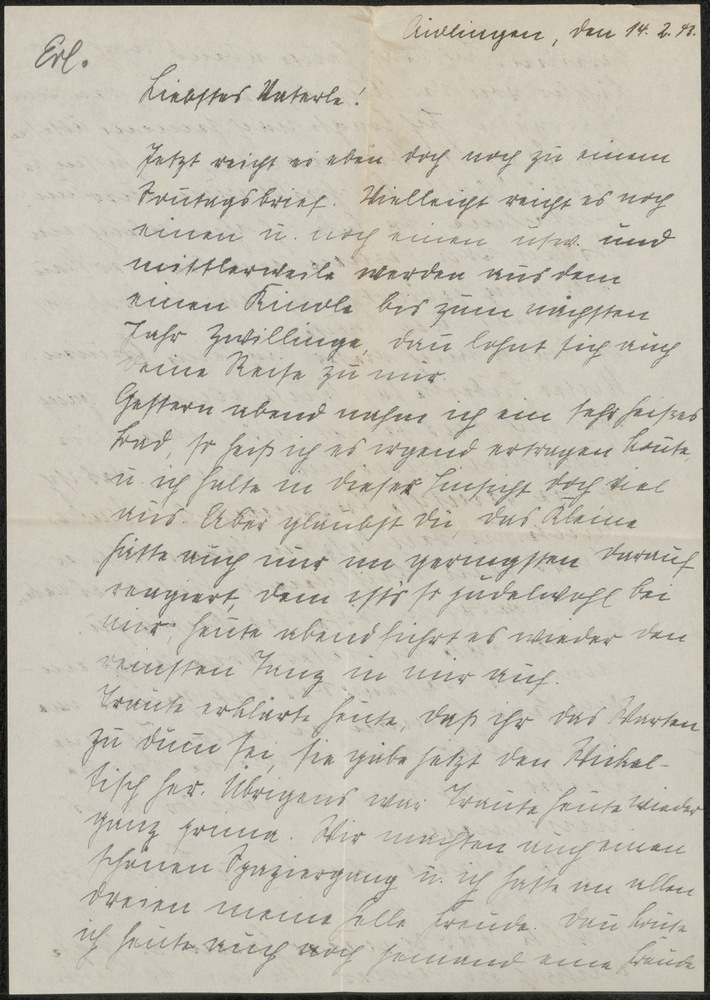 Aidlingen, den 14. 2. 43.
Erl.
Liebstes Vaterle!
Jetzt reicht es eben doch noch zu einem
Sonntagsbrief. Vielleicht reicht es noch
einen u. noch einen usw. und
mittlerweile werden aus dem
einen Kindle bis zum nächsten
Jahr Zwillinge, dann lohnt sich auch
Deine Reise zu mir.
Gestern abend nahm ich ein sehr heißes
Bad, so heiß ich es irgend ertragen konnte,
u. ich halte in dieser Hinsicht doch viel
aus. Aber glaubst Du, das Kleine
hätte auch nur im geringsten darauf
reagiert, dem ists so pudelwohl bei
mir; heute abend führt es wieder den
reinsten Tanz in mir auf.
Traute erklärte heute, daß ihr das Warten
zu dumm sei, sie gäbe jetzt den Wickel-
tisch her. Übrigens war Traute heute wieder
ganz prima. Wir machten auch einen
schönen Spaziergang u. ich hatte an allen
dreien meine helle Freude. Dann konnte
ich heute auch noch jemand eine Freude